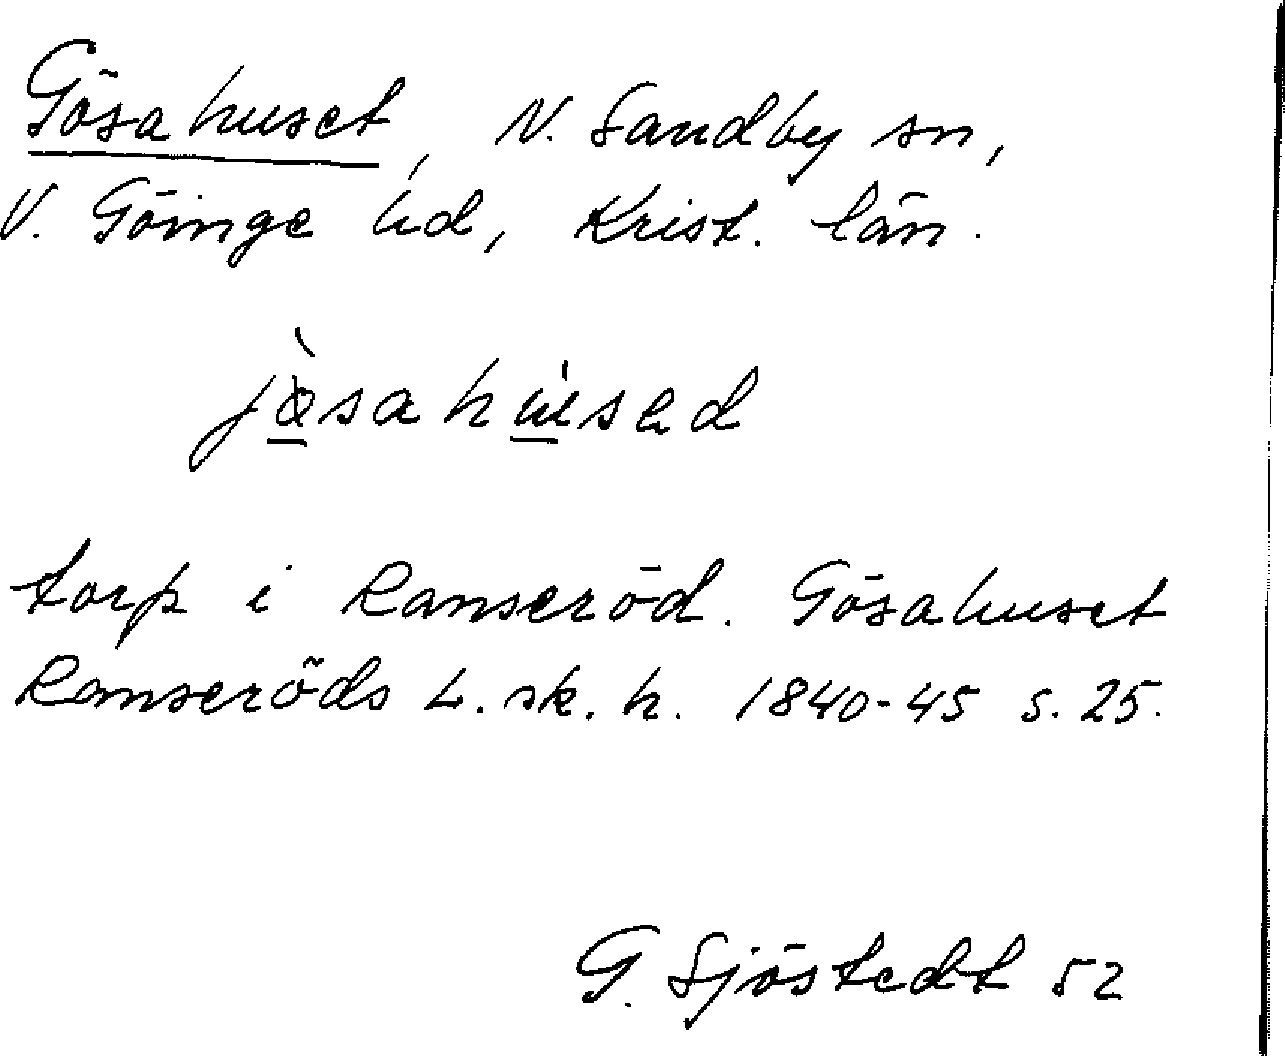 Gösahuset, N. Sandby sn,
V. Göinge hd, Krist. län.
jø̀sahúsəd
torp i Ranseröd. Gösahuset
Ranseröds L. sk. h. 1840-45 s. 25.
G. Sjöstedt 52